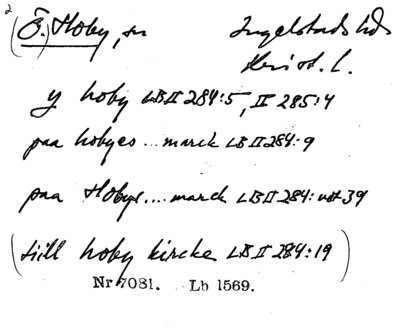 2
(Ö.) Hoby, sn Ingelstads hd
Krist. l.
y hoby LB II 284:5, II 285:4
paa hobyes ... marck LB II 284:9
paa Hobys .... marck LB II 284: 39
(till hoby kircke LB II 284:19)
Nr 7081. Lb 1569.